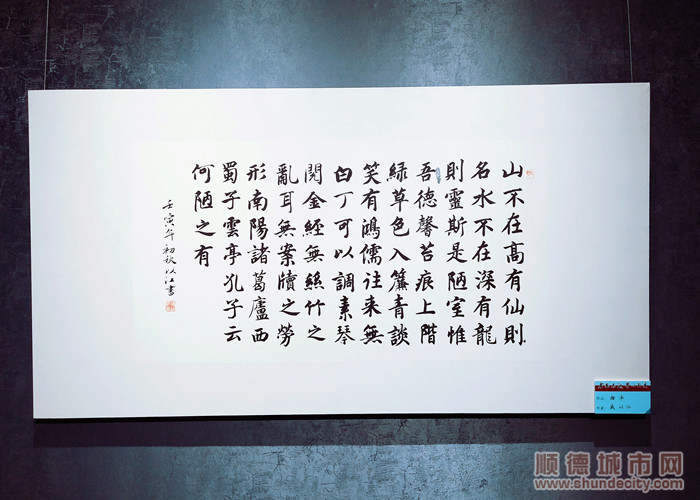 山不在高有仙則
名水不在深有龍
則靈斯是陋室惟
吾德馨苔痕上階
綠草色入簾青談
笑有鴻儒往来無
白丁可以調素琴
閱金經無絲竹之
亂耳無案牘之勞
形南陽諸葛廬西
蜀子雲亭孔子云
何陋之有
壬寅年初秋以江書
順德城市网
www.shundecity.com